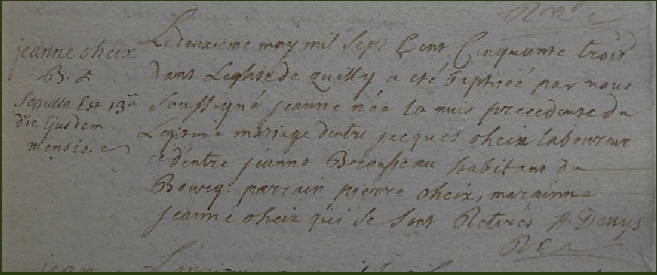 jeanne oheix
B. f.
Sepulta Est 13a
die Ejusdem
mensis.
Le deuxième may mil Sept Cent Cinquante trois
dans Leglise de quilly a été baptiseé par nous
Soussigné jeanne née la nuit precedente du
Legitime mariage dentre jacques oheix laboureur
et dentre jeanne Brousseau habitans du
Bourg. parrain pierre oheix, marainne
jeanne oheix qui se sont Retirés A Denys